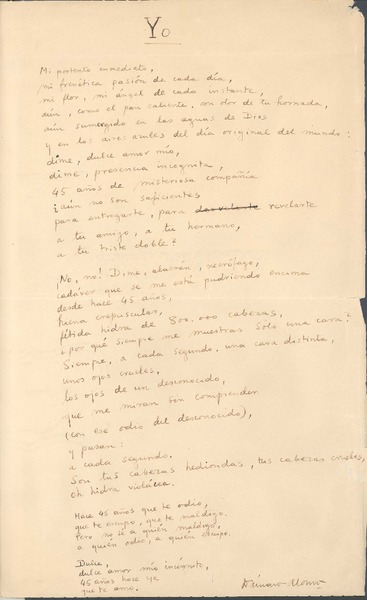 Yo
Mi portento inmediato,
mi frenética pasión de cada día,
mi flor, mi ángel de cada instante,
aún, como el pan caliente, con olor de tu hornada,
aún sumergido en las aguas de Dios
y en los aires azules del día original del mundo:
dime, dulce amor mío,
dime, presencia incógnita,
45 años de misteriosa compañía
¿aún no son suficientes
para entregarte, para desvelarte revelarte
a tu amigo, a tu hermano,
a tu triste doble?
¡No, no! Dime, alacrán, necrófago,
cadáver que se me está pudriendo encima
desde hace 45 años,
hiena crepuscular,
fétida hidra de 800.000 cabezas,
¿por qué siempre me muestras sólo una cara?
Siempre, a cada segundo, una cara distinta,
unos ojos crueles,
los ojos de un desconocido,
que me miran sin comprender
(con ese odio del desconocido),
y pasan:
a cada segundo.
Son tus cabezas hediondas, tus cabezas crueles,
oh hidra violácea.
Hace 45 años que te odio,
que te escupo, que te maldigo.
Pero no sé a quién maldigo,
a quién odio, a quién escupo.
Dulce,
dulce amor mío incógnito,
45 años hace ya
que te amo.
Dámaso Alonso